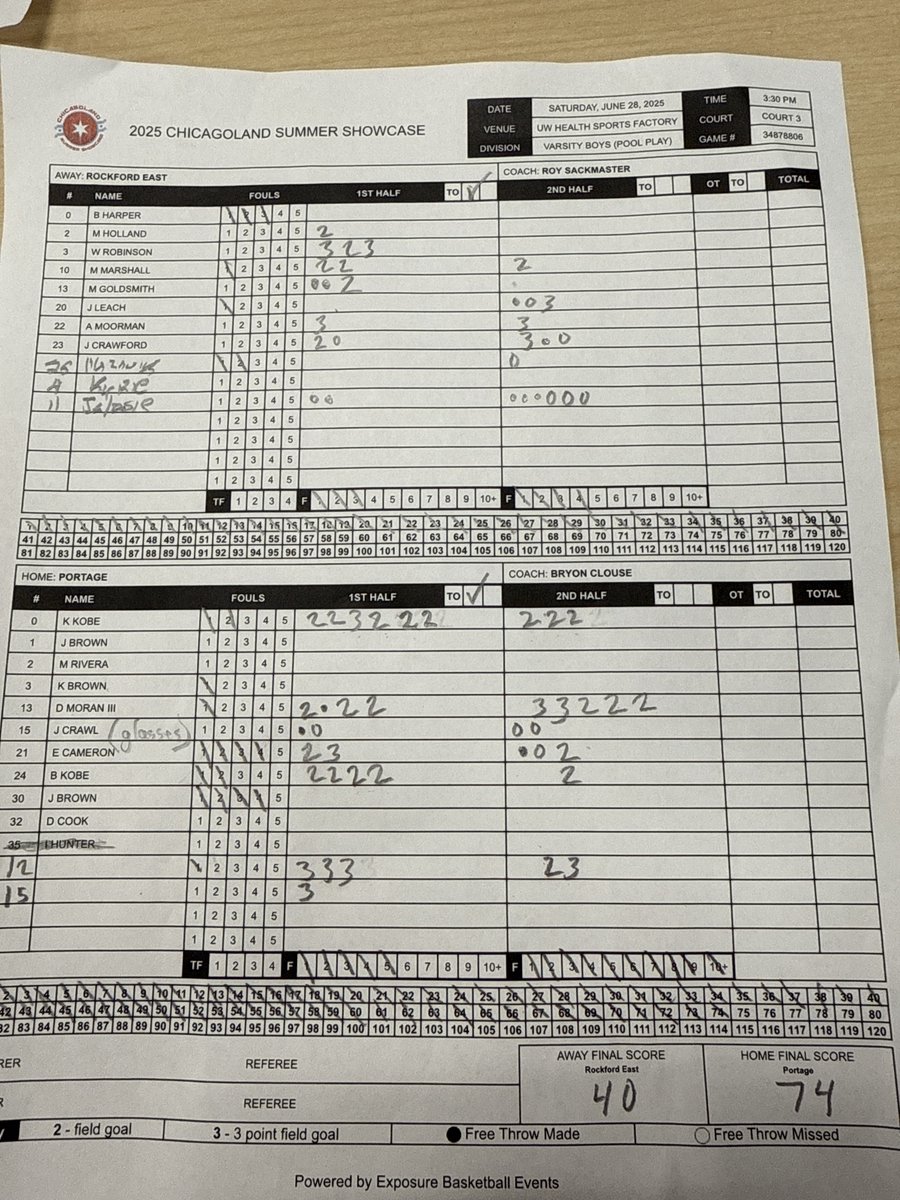 CHICAGOLAND SUMMER SHOWCASE
2025 CHICAGOLAND SUMMER SHOWCASE
DATE SATURDAY, JUNE 28, 2025 TIME 3:30 PM
VENUE UW HEALTH SPORTS FACTORY COURT COURT 3
DIVISION VARSITY BOYS (POOL PLAY) GAME # 34878806
AWAY: ROCKFORD EAST COACH: ROY SACKMASTER
# NAME FOULS 1ST HALF TO 2ND HALF TO OT TO TOTAL
0 B HARPER 1 2 3 4 5
2 M HOLLAND 1 2 3 4 5 2
3 W ROBINSON 1 2 3 4 5 3 2 3
10 M MARSHALL 1 2 3 4 5 2 2 2
13 M GOLDSMITH 1 2 3 4 5 2
20 J LEACH 1 2 3 4 5 3
22 A MOORMAN 1 2 3 4 5 3 3
23 J CRAWFORD 1 2 3 4 5 2 0 3 0
1 2 3 4 5 0
1 2 3 4 5
11 1 2 3 4 5 0 0 0
1 2 3 4 5
1 2 3 4 5
1 2 3 4 5
1 2 3 4 5
TF 1 2 3 4 F 1 2 3 4 5 6 7 8 9 10+ F 1 2 3 4 5 6 7 8 9 10+
1 2 3 4 5 6 7 8 9 10 11 12 13 14 15 16 17 18 19 20 21 22 23 24 25 26 27 28 29 30 31 32 33 34 35 36 37 38 39 40
41 42 43 44 45 46 47 48 49 50 51 52 53 54 55 56 57 58 59 60 61 62 63 64 65 66 67 68 69 70 71 72 73 74 75 76 77 78 79 80
81 82 83 84 85 86 87 88 89 90 91 92 93 94 95 96 97 98 99 100 101 102 103 104 105 106 107 108 109 110 111 112 113 114 115 116 117 118 119 120
HOME: PORTAGE COACH: BRYON CLOUSE
# NAME FOULS 1ST HALF TO 2ND HALF TO OT TO TOTAL
0 K KOBE 1 2 3 4 5 2 2 3 2 2 2 2 2 2
1 J BROWN 1 2 3 4 5
2 M RIVERA 1 2 3 4 5
3 K BROWN 1 2 3 4 5
13 D MORAN III 1 2 3 4 5 2 • 2 2 3 3 2 2 2
15 J CRAWL (glasses) 1 2 3 4 5 • 0 0 0
21 E CAMERON 1 2 3 4 5 2 3 • 0 2
24 B KOBE 1 2 3 4 5 2 2 2 2 2
30 J BROWN 1 2 3 4 5
32 D COOK 1 2 3 4 5
35 I HUNTER 1 2 3 4 5
12 1 2 3 4 5 3 3 3 2 3
15 1 2 3 4 5 3
1 2 3 4 5
1 2 3 4 5
TF 1 2 3 4 F 1 2 3 4 5 6 7 8 9 10+ F 1 2 3 4 5 6 7 8 9 10+
2 3 4 5 6 7 8 9 10 11 12 13 14 15 16 17 18 19 20 21 22 23 24 25 26 27 28 29 30 31 32 33 34 35 36 37 38 39 40
42 43 44 45 46 47 48 49 50 51 52 53 54 55 56 57 58 59 60 61 62 63 64 65 66 67 68 69 70 71 72 73 74 75 76 77 78 79 80
82 83 84 85 86 87 88 89 90 91 92 93 94 95 96 97 98 99 100 101 102 103 104 105 106 107 108 109 110 111 112 113 114 115 116 117 118 119 120
RER REFEREE
R REFEREE
AWAY FINAL SCORE
Rockford East
40
HOME FINAL SCORE
Portage
74
2 - field goal 3 - 3 point field goal Free Throw Made Free Throw Missed
Powered by Exposure Basketball Events